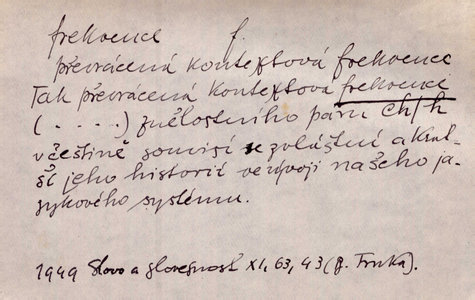 frekvence f.
převrácená kontextová frekvence
Tak převrácená kontextová frekvence
(. . . .) znělostního páru ch/h
v češtině souvisí se zvláštní a krat-
ší jeho historií ve vývoji našeho ja-
zykového systému.
1949 Slovo a slovesnost XI, 63, 43 (B. Trnka).